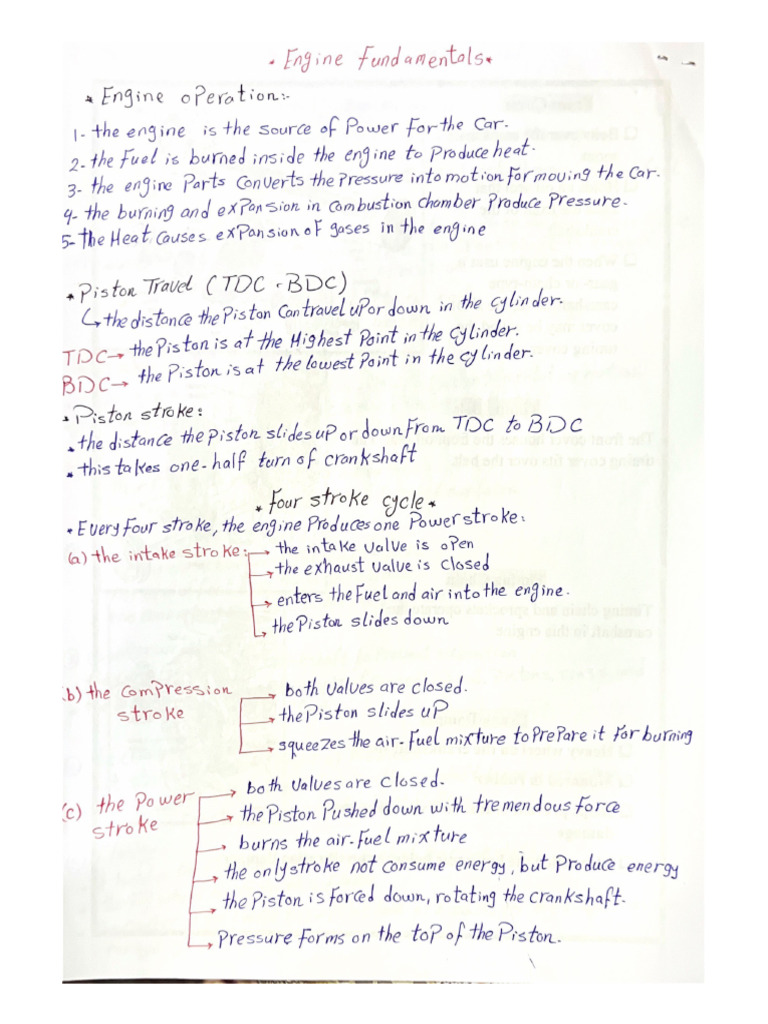 * Engine Fundamentals *
* Engine operation:-
1- the engine is the source of Power For the Car.
2- the Fuel is burned inside the engine to Produce heat.
3- the engine Parts Converts the Pressure into motion For moving the Car.
4- the burning and expansion in Combustion chamber Produce Pressure.
5- The Heat Causes expansion of gases in the engine
* Piston Travel (TDC - BDC)
↳ the distance the Piston Can travel up or down in the cylinder.
TDC → the Piston is at the Highest Point in the cylinder.
BDC → the Piston is at the lowest Point in the cylinder.
* Piston stroke:
* the distance the Piston slides up or down From TDC to BDC
* this takes one-half turn of crankshaft
* Four stroke cycle *
* Every Four stroke, the engine Produces one Power stroke:
(a) the intake stroke: → the intake valve is open
→ the exhaust value is closed
→ enters the Fuel and air into the engine.
→ the Piston slides down
(b) the Compression stroke → both values are closed.
→ the Piston slides up
→ squeezes the air-Fuel mixture to Prepare it For burning
(c) the Power stroke → both values are closed.
→ the Piston Pushed down with tremendous Force
→ burns the air-Fuel mixture
→ the only stroke not consume energy, but Produce energy
→ the Piston is Forced down, rotating the crankshaft.
→ Pressure Forms on the top of the Piston.